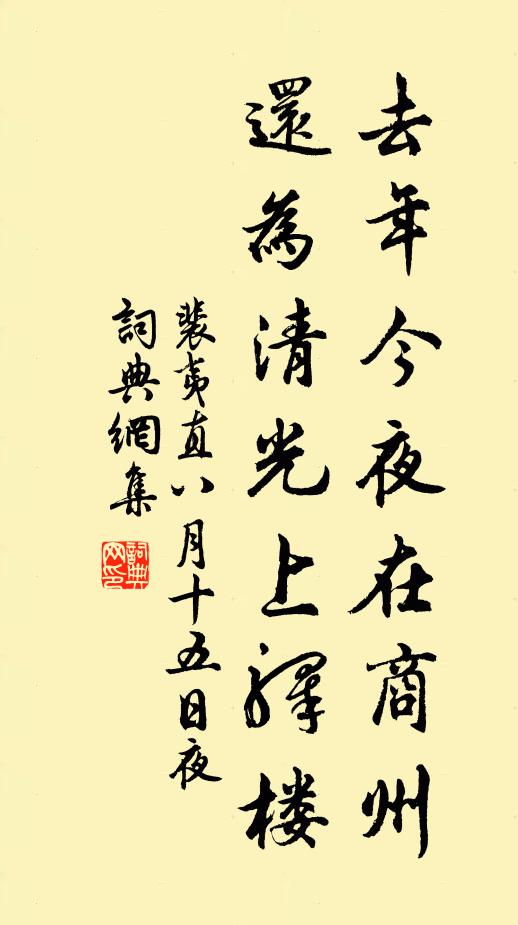 去年今夜在商州
還為清光上驛楼
裴夷直八月十五日夜
詞典網集
詞典網印